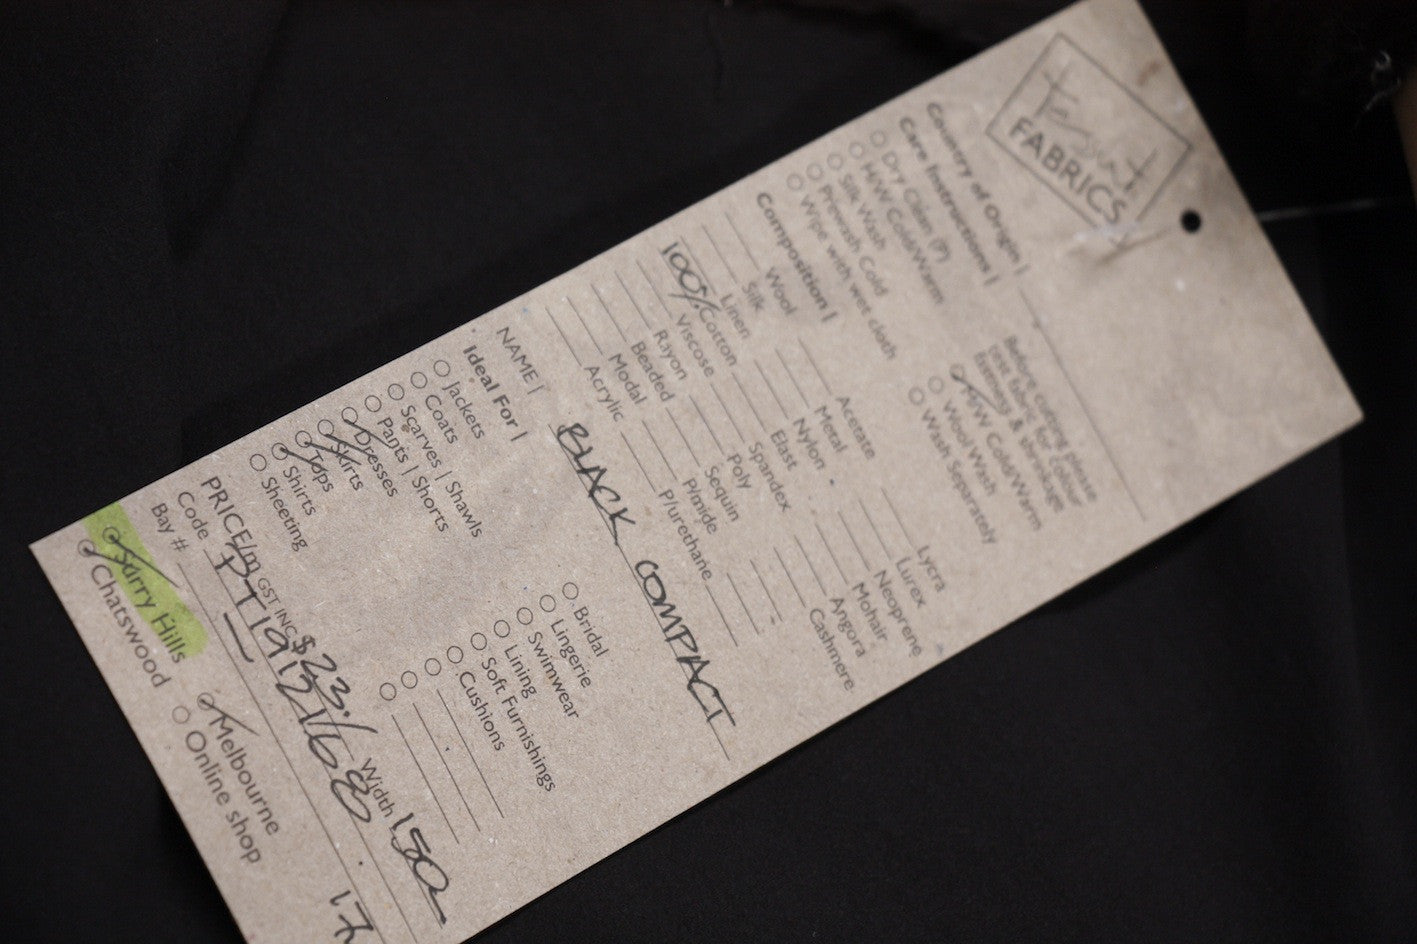 Tessuti
FABRICS
Country of Origin |
Care Instructions |
Before cutting please
test fabric for colour
fastness & shrinkage
Dry Clean (P)
H/W Cold/Warm
Silk Wash
Prewash Cold
Wipe with wet cloth
H/W Cold/Warm
Wool Wash
Wash Separately
Composition |
Wool
Silk
Linen
100% Cotton
Viscose
Rayon
Beaded
Modal
Acrylic
Acetate
Metal
Nylon
Elast
Spandex
Poly
Sequin
P/mide
P/urethane
Lycra
Lurex
Neoprene
Mohair
Angora
Cashmere
NAME | BLACK COMPACT
Ideal For |
Jackets
Coats
Scarves | Shawls
Pants | Shorts
Dresses
Skirts
Tops
Shirts
Sheeting
Bridal
Lingerie
Swimwear
Lining
Soft Furnishings
Cushions
PRICE/m GST INC $23.- Width 150
Code PT1912/680
Bay #
Surry Hills
Chatswood
Melbourne
Online shop